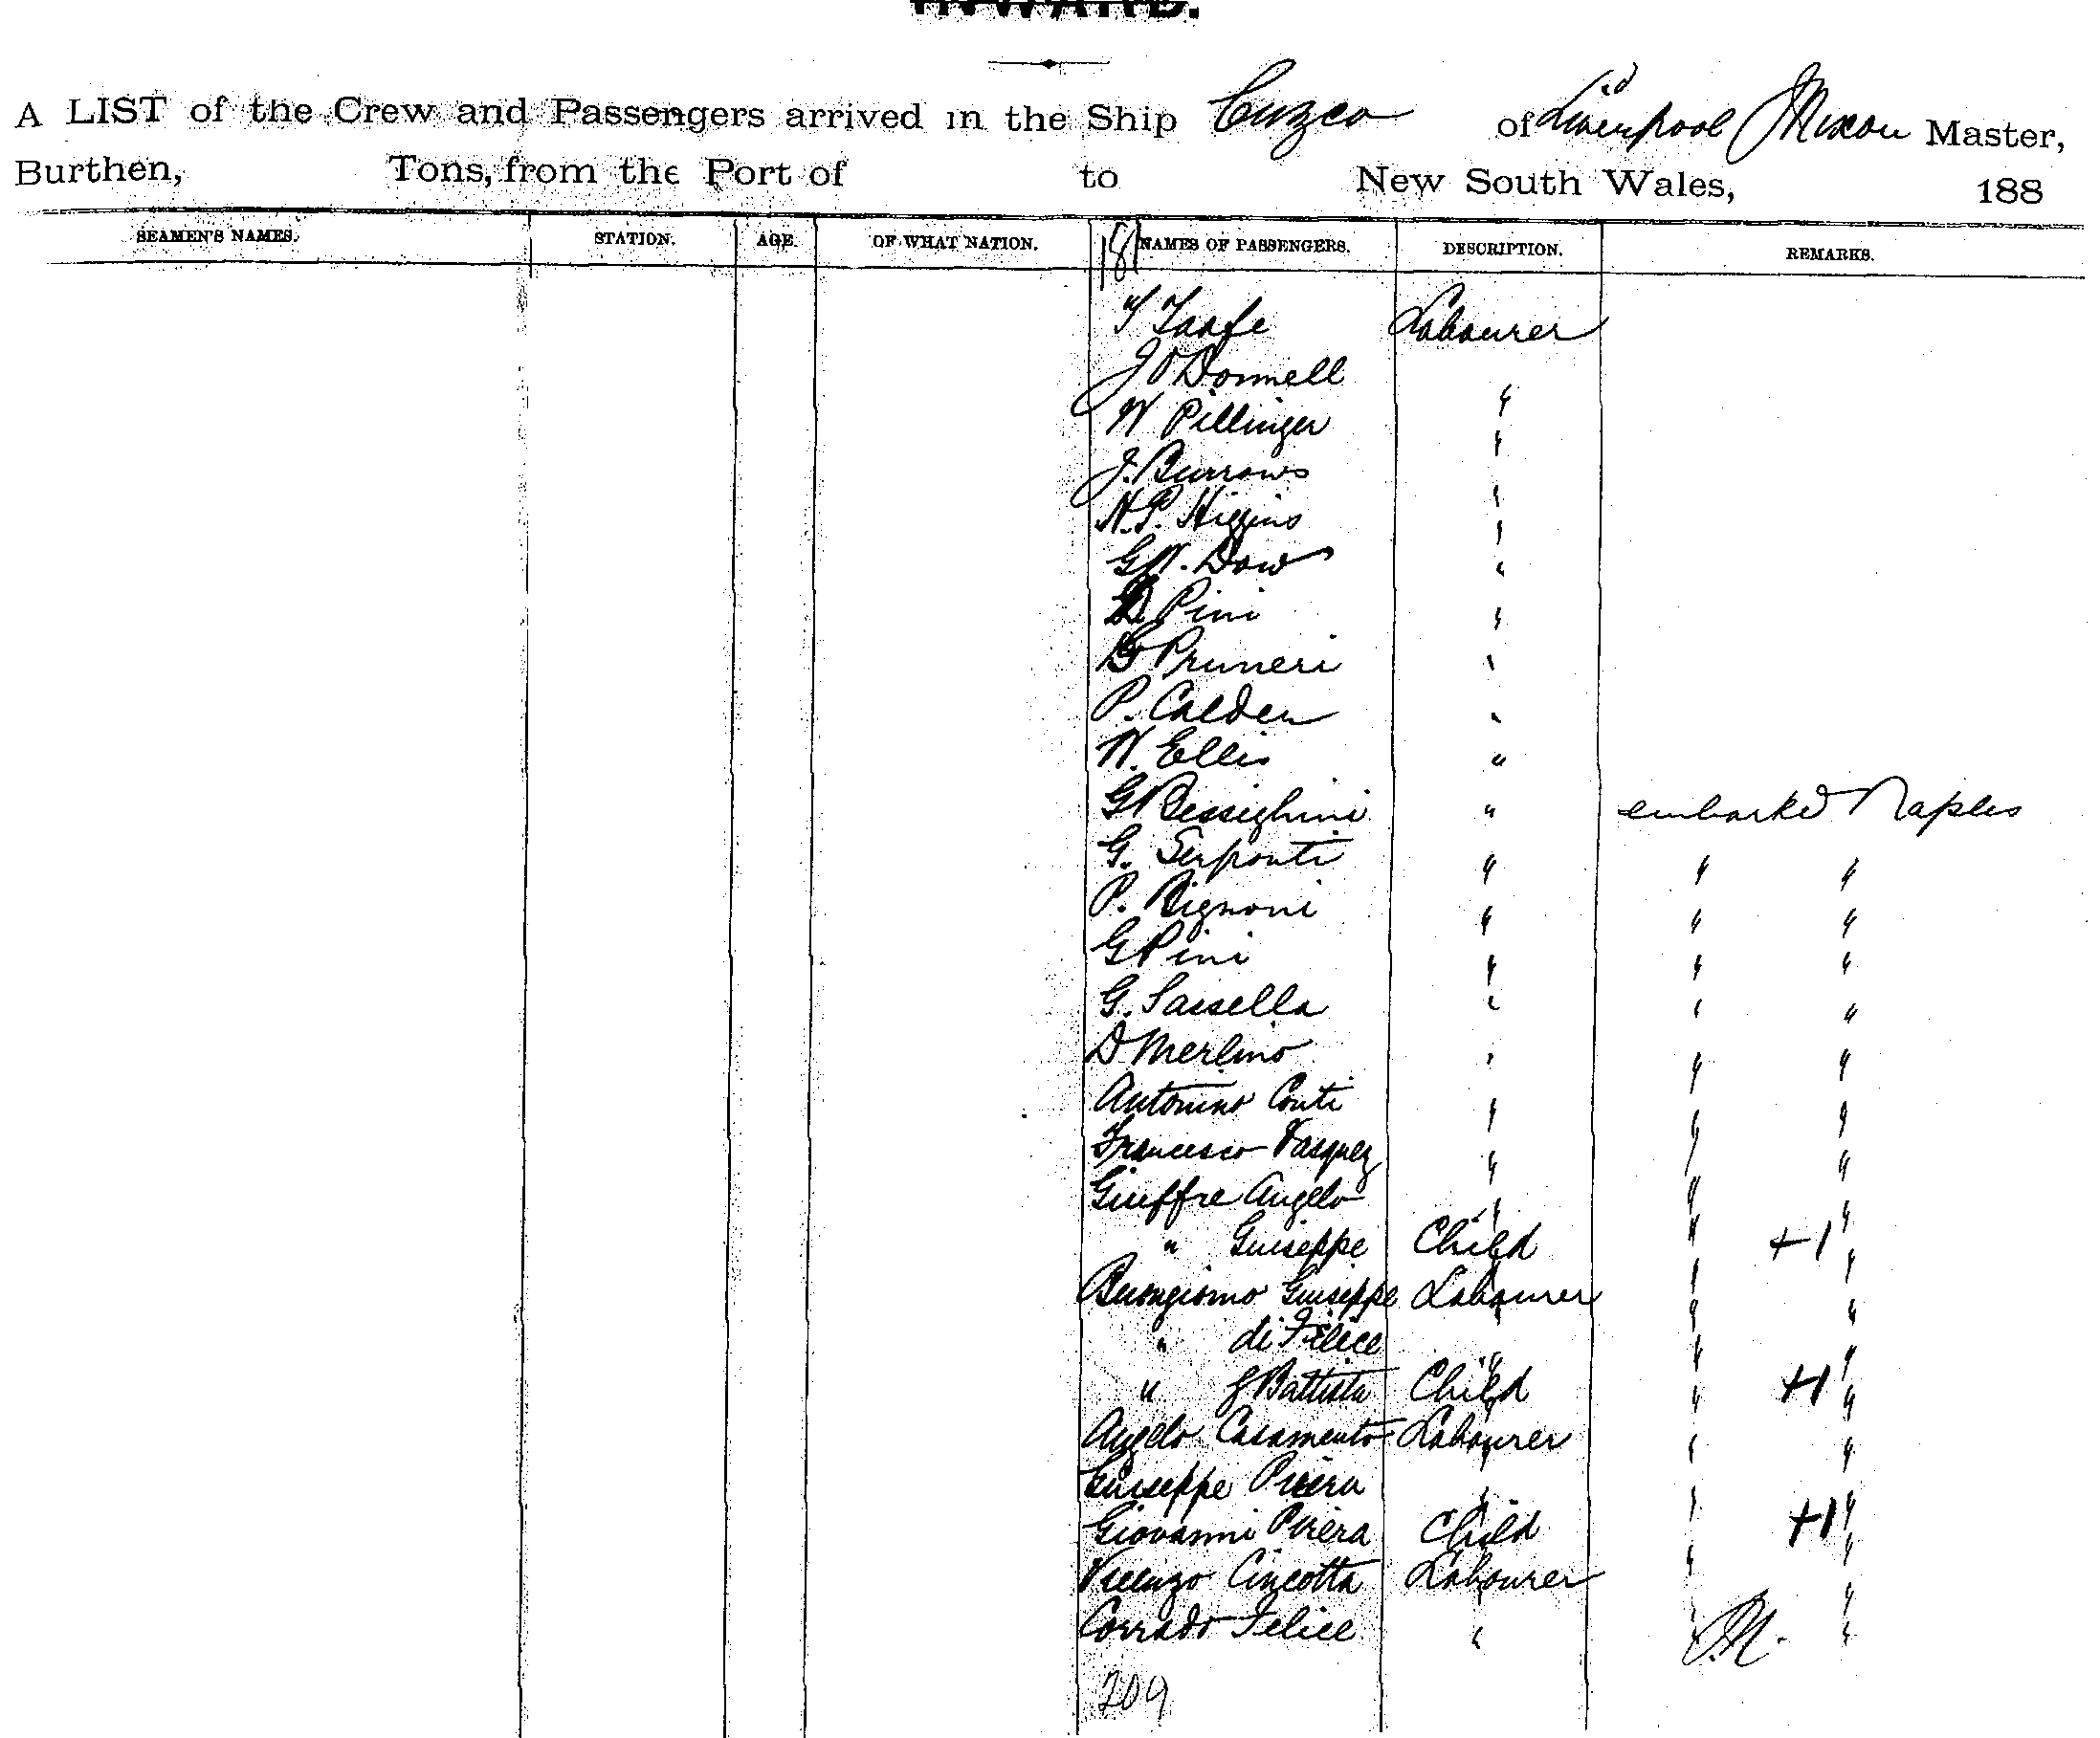 INWARD.
A LIST of the Crew and Passengers arrived in the Ship Cuzco of Liverpool Master,
Burthen, Tons, from the Port of to New South Wales, 188
SEAMEN'S NAMES. STATION. AGE. OF WHAT NATION. NAMES OF PASSENGERS. DESCRIPTION. REMARKS.
181
T Taafe Labourer
J O'Donnell "
W Pillinger "
J. Burrows "
H.P. Higgins "
G.W. Dow "
D Pini "
G Pruneri "
P. Calden "
W. Ellis "
G Bessighini " embarked Naples
G. Serponti " " "
P. Bignoni " " "
G Pini " " "
G. Sassella " " "
D Merlino " " "
Antonino Conti " " "
Francesco Vasquez " " "
Giuffre Angelo " " "
" Guiseppe Child " +1 "
Buongiorno Guiseppe Labourer " "
" di Felice " " "
" G Battista Child " +1 "
Angelo Casamento Labourer " "
Guiseppe Pirera " " "
Giovanni Pirera Child " +1 "
Vicenzo Cincotta Labourer " "
Corrado Felice " " "
209